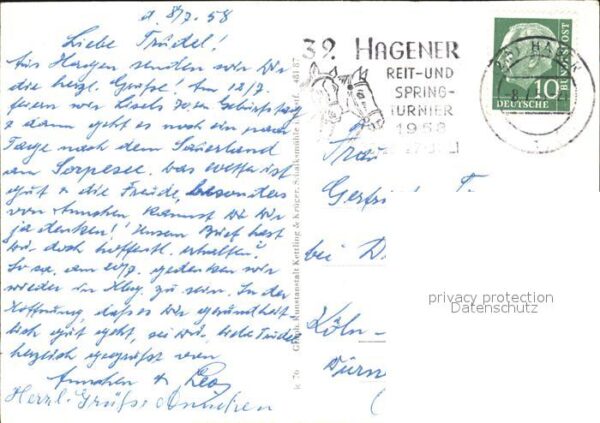 d. 8/7. 58
Liebe Trudel!
Aus Hagen senden wir Dir
die herzl. Grüße! Am 12/7.
feiern wir Lisels 70sten Geburtstag
& dann geht es noch ein paar
Tage nach dem Sauerland
am Sorpesee. Das Wetter ist
gut & die Freude, besonders
von Ännchen kannst Du Dir
ja denken! Unsern Brief hast
Du doch hoffentl. erhalten?
So ca. am 20/7. gedenken wir
wieder in Kbg. zu sein. In der
Hoffnung, daß es Dir gesundheit-
lich gut geht, sei Du, liebe Trudel
herzlich gegrüßt von
Ännchen & Leo
Herzl. Grüße Ännchen
Graph. Kunstanstalt Kettling & Krüger, Schalksmühle
481 87
Ic 76
39. HAGENER
REIT-UND
SPRING-
TURNIER
1958
HAGEN
10
DEUTSCHE
BUNDESPOST
Frau
Gertru T.
bei D
Köln-
Dürn
privacy protection
Datenschutz